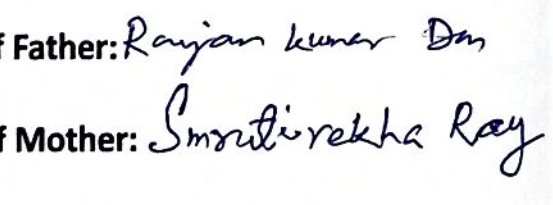 f Father: Ranjan kumar Das
f Mother: Smrutirekha Ray